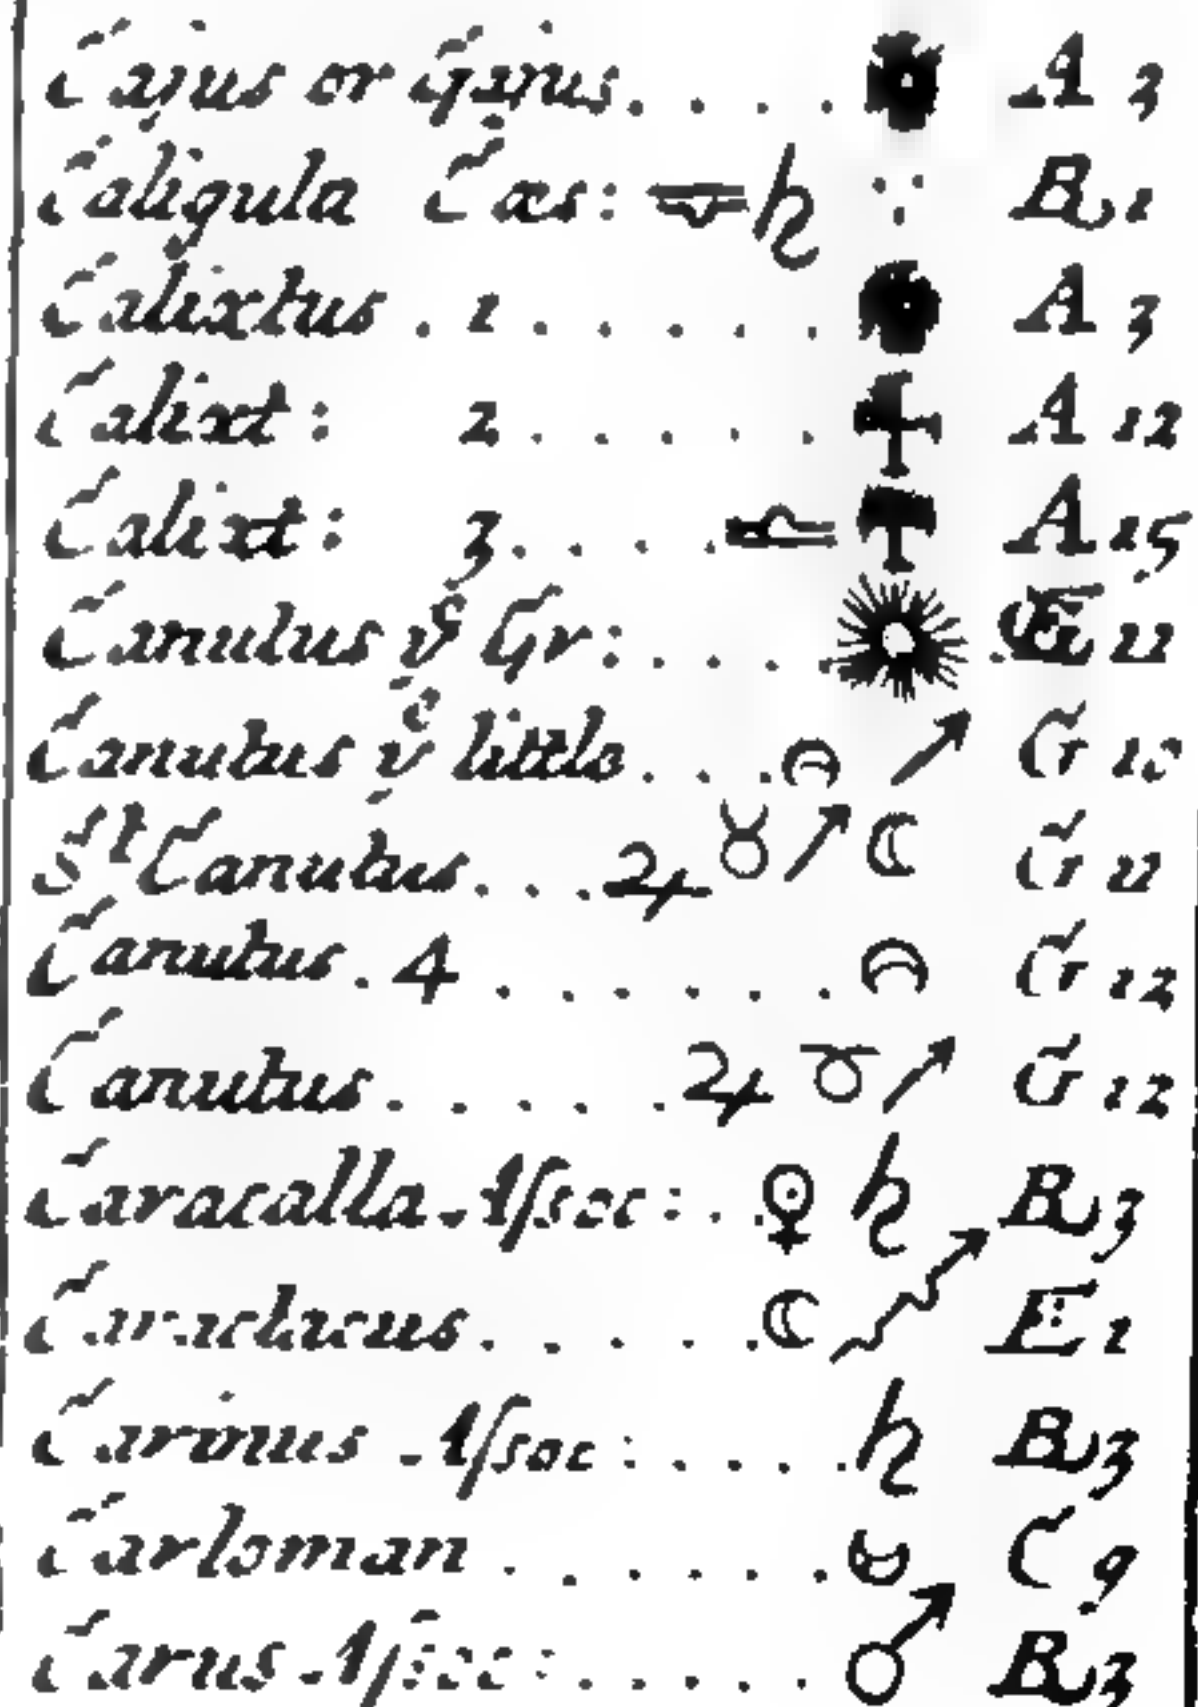 Cajus or Gajus. . . . . A 3
Caligula Cæs: ♎ ♄ ∵ B 1
Calixtus . 1 . . . . . A 3
Calixt: 2 . . . . . A 12
Calixt: 3. . . . . ♎ A 15
Canutus yͤ Gr: . . . . . E 11
Canutus yͤ little . . . ☽ ↗ G 10
Sᵗ Canutus. . . . ♃ ♉ ↗ ☾ G 11
Canutus . 4 . . . . . . G 12
Canutus. . . . . . ♃ ♉ ↗ G 12
Caracalla Aſsoc: . . ♀ ♄ B 3
Caractacus. . . . . . ☾ E 1
Carinus Aſsoc: . . . . ♄ B 3
Carloman . . . . . . C 9
Carus Aſsoc: . . . . . ♂ B 3